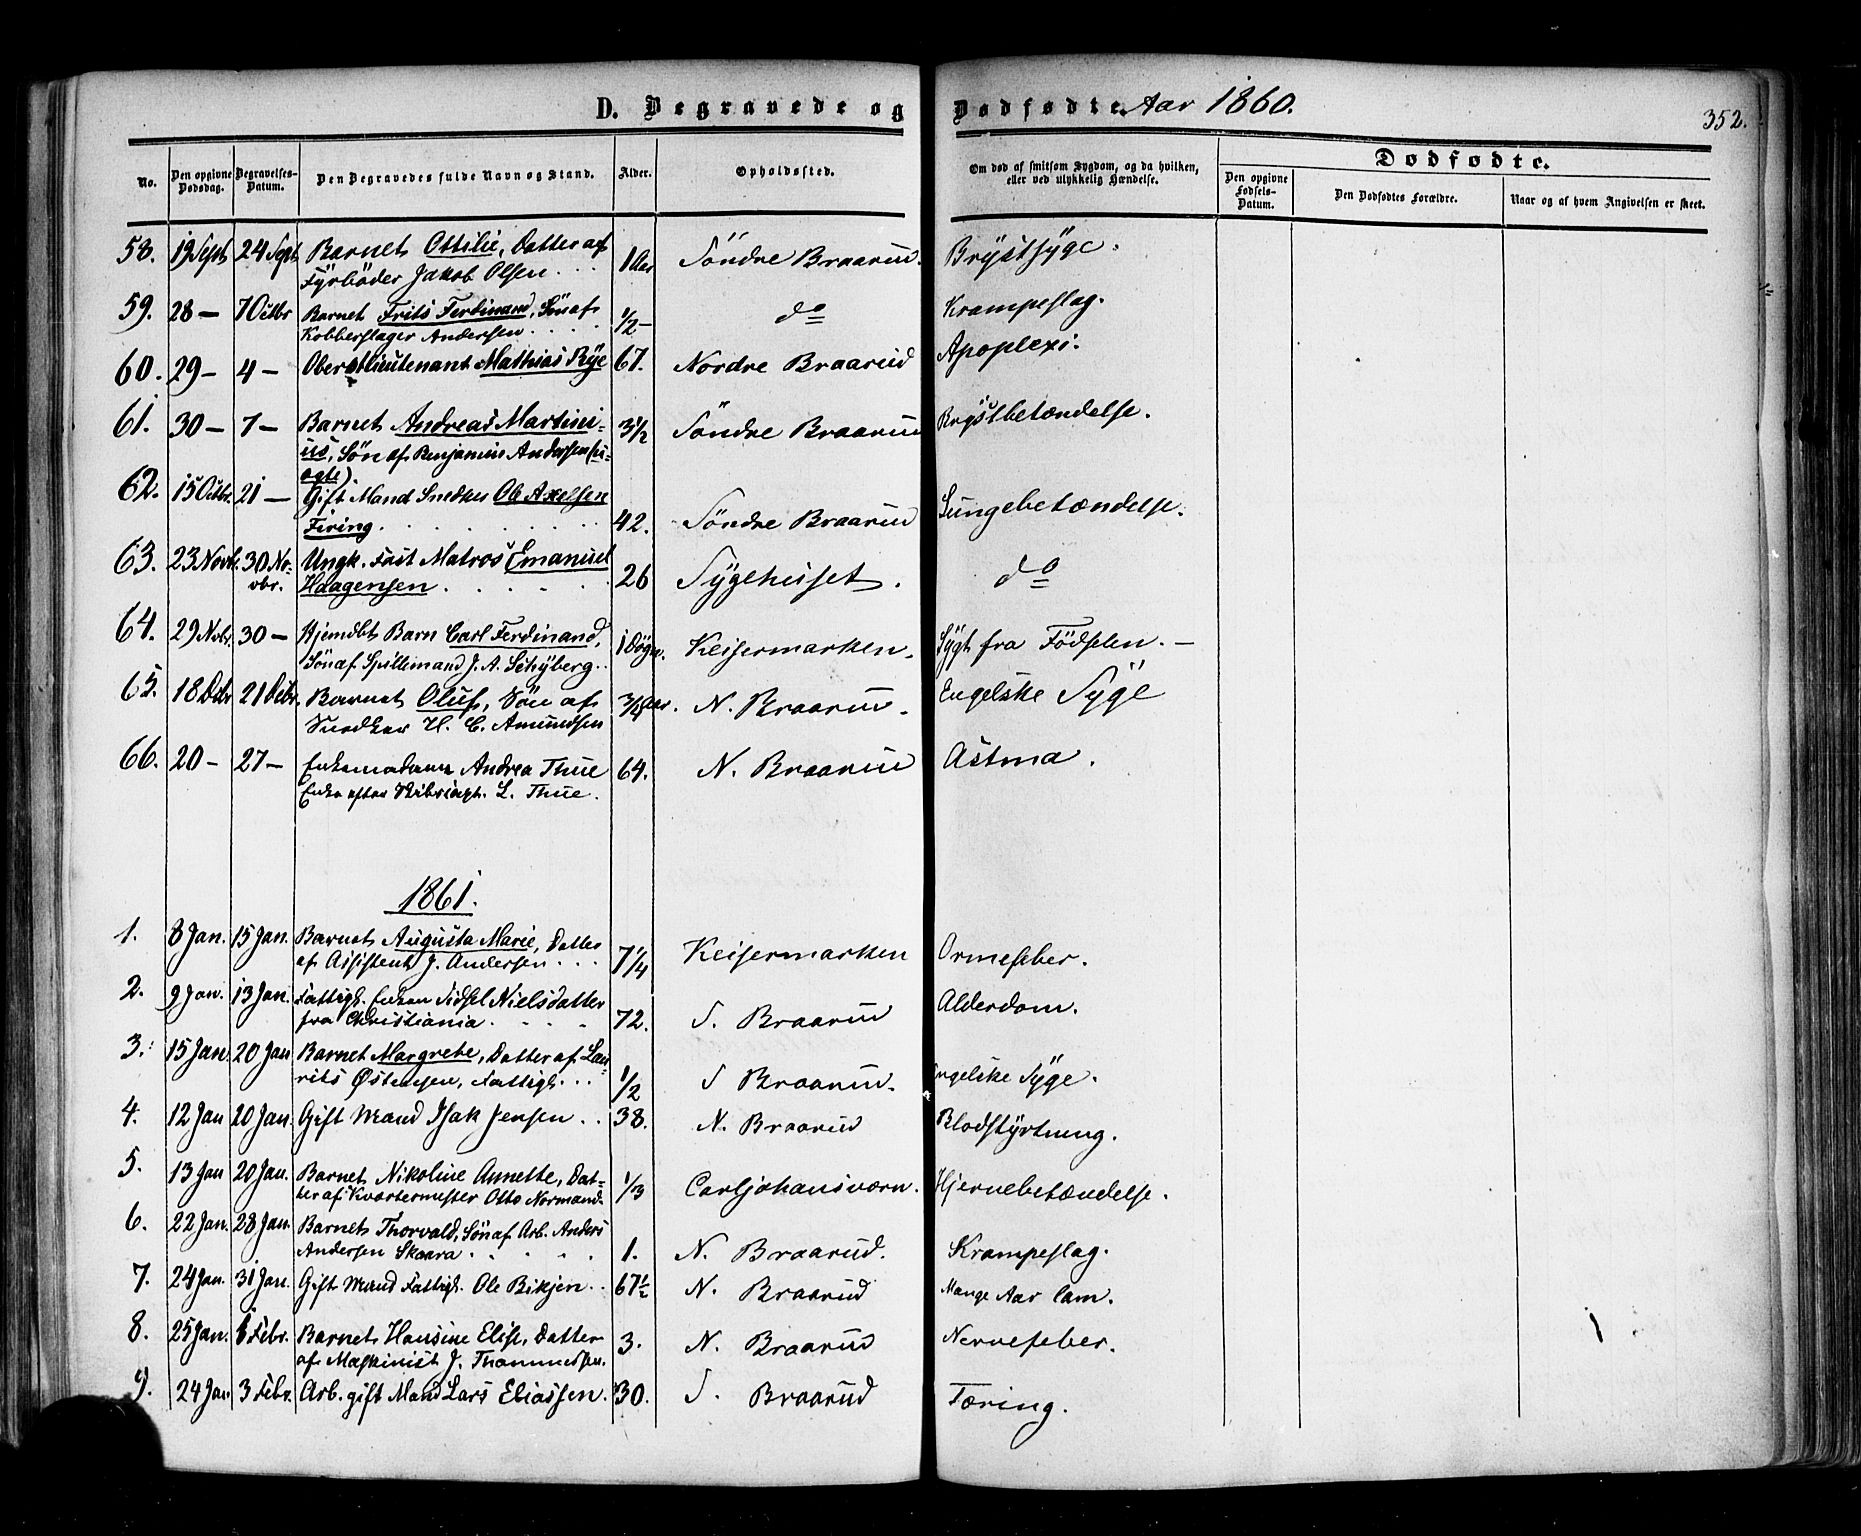 D. Begravede og Dødfødte. Aar 1860.
352.
No.
Den opgivne Dødsdag.
Begravelses-Datum.
Den Begravedes fulde Navn og Stand.
Alder.
Opholdssted.
Om død af smitsom Sygdom, og da hvilken, eller ved ulykkelig Hændelse.
Dødfødte.
Den opgivne Fødsels-Datum.
Den Dødfødtes Forældre.
Naar og af hvem Angivelsen er skeet.
58. 19 Sept 24 Sept Barnet Ottilie, Datter af
Fyrbøder Jakob Olsen . . . 1 Aar Söndre Braarud. Brystsyge.
59. 28 — 7 Octbr Barnet Frits Ferdinand, Søn af
Kobberslager Andersen . . . . 1/2 — do Krampeslag.
60. 29 — 4 — Oberstlieutenant Mathias Rye 67. Nordre Braarud Apoplexi.
61. 30 — 7 — Barnet Andreas Martini-
us, Søn af Benjamin Andersen (u-
ægte). 3 1/2 Söndre Braarud Brystbetændelse.
62. 15 Octbr. 21 — Gift Mand Snedker Ole Axelsen
Firing . . . . . . . 42. Söndre Braarud Lungebetændelse.
63. 23 Novb. 30 No-
vbr. Ungk. Fast Matros Emanuel
Haagensen . . . . . 26 Sygehuset. do
64. 29 Nvbr. 30 — Hjemdbt Barn Carl Ferdinand,
Søn af Spillemand J. A. Schyberg. . 1 Døgn. Keisermarken. Sygt fra Födselen. —
65. 18 Debr 21 Debr. Barnet Oluf, Søn af
Snedker H. C. Amundsen 3/4 Aar. N. Braarud. Engelske Syge
66. 20 — 27 — Enkemadame Andrea Thue
Enke efter L. Thue. 64. N. Braarud Astma.
1861.
1. 8 Jan. 15 Jan. Barnet Augusta Marie, Datter
af Assistent J. Andersen . . . 7 1/4 Keisermarken Ormefeber.
2. 9 Jan. 13 Jan. Fattigl. Enken Sidsel Nielsdatter
fra Christiania . . . . 72. S. Braarud Alderdom.
3. 15 Jan. 20 Jan Barnet Margrete, Datter af Lau-
rits Østensen, Fattigl. . . . 1/2 S Braarud. Engelske Syge.
4. 12 Jan 20 Jan. Gift Mand Isak Jensen . . 38. N. Braarud Blodstyrtning.
5. 13 Jan 20 Jan. Barnet Nikoline Annette, Dat-
ter af Kvartermester Otto Normand. 1/3 Carljohansværn. Hjernebetændelse.
6. 22 Jan. 28 Jan. Barnet Thorvald, Søn af Arb. Anders
Andersen Skaara . . . . 1. N. Braarud. Krampeslag.
7. 24 Jan. 31 Jan. Gift Mand Fattigl. Ole Bikjen . . 67 1/2 N. Braarud Mange Aar lam.
8. 25 Jan. 6 Febr. Barnet Hansine Elise, Datter
af Maskinist J. Thommessen. 3. N. Braarud Nervefeber.
9. 24 Jan. 3 Febr. Arb. gift Mand Lars Eliassen. 30. S. Braarud Tæring.